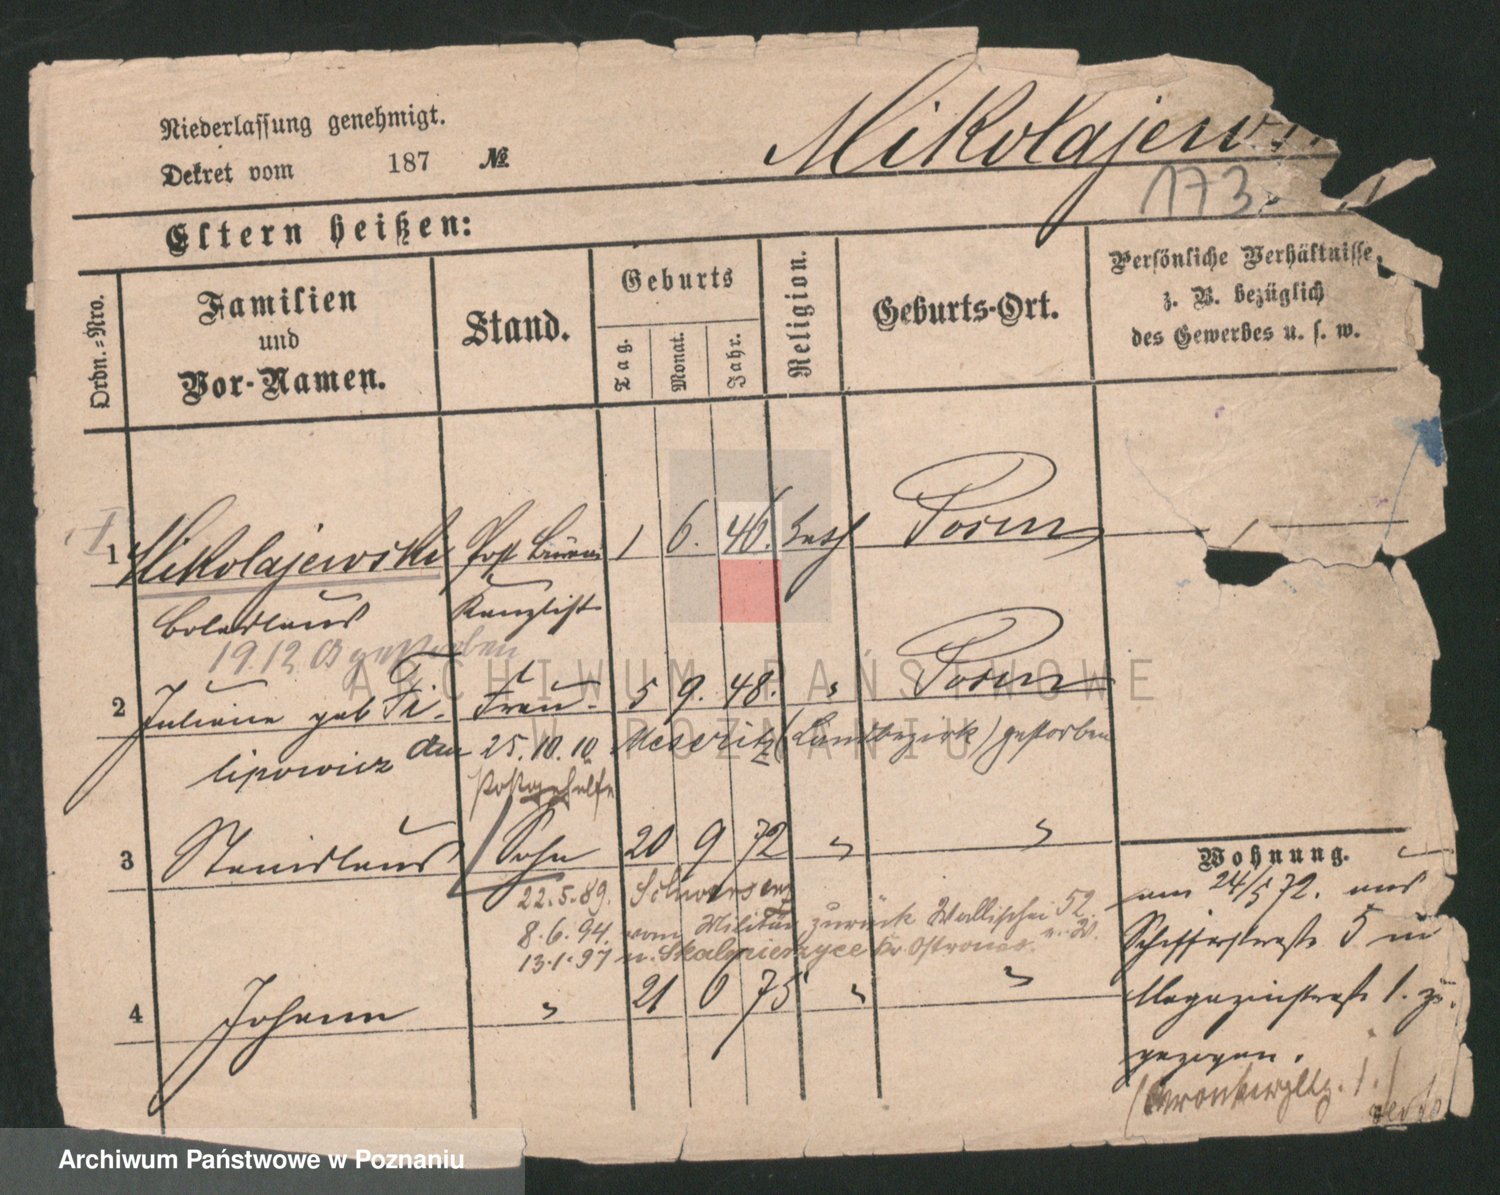 Niederlassung genehmigt.
Dekret vom 187 №
Mikolajews
173.
Eltern heißen:
Ordn.-Nro.
Familien und Vor-Namen.
Stand.
Geburts
Tag.
Monat.
Jahr.
Religion.
Geburts-Ort.
Persönliche Verhältnisse, z. B. bezüglich des Gewerbes u. s. w.
1 Mikolajewski Post Büreau 1 6. 46. kath Posen
Boleslaus Kanzlist
19.12 03 gestorben
2 Juliane geb Fi- Frau 5 9. 48. " Posen
lipowicz den 25.10.10 Meseritz (Landbezirk) gestorben
Postgehülfe
3 Stanislaus Sohn 20 9 72 " "
22.5.89. Schwersenz
8.6.94. vom Militär zurück Wallischei 52.
13.1.97 n. Skalmierzyce Kr. Ostrowo
4 Johann " 21 6 75 " "
Wohnung.
am 24/5 72. aus
Schifferstraße 5 in
Magazinstraße 1. zu-
gezogen.
ARCHIWUM PAŃSTWOWE
W POZNANIU
Archiwum Państwowe w Poznaniu